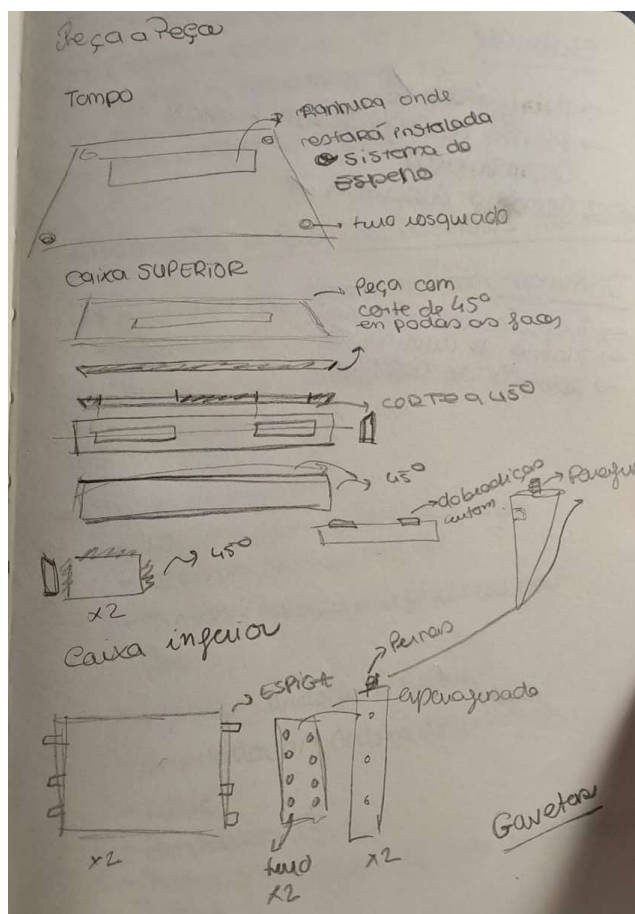 Peça a Peça
Tampo
Ranhura onde
estará instalada
o sistema do
Espelho
furo rosquado
Caixa SUPERIOR
Peça com
corte de 45º
em todas as faces
CORTE a 45º
45º
dobradiças
autom.
Parafuso
45º
x2
Caixa inferior
ESPIGA
Pernas
aparafusado
x2
furo
x2
x2
Gavetas